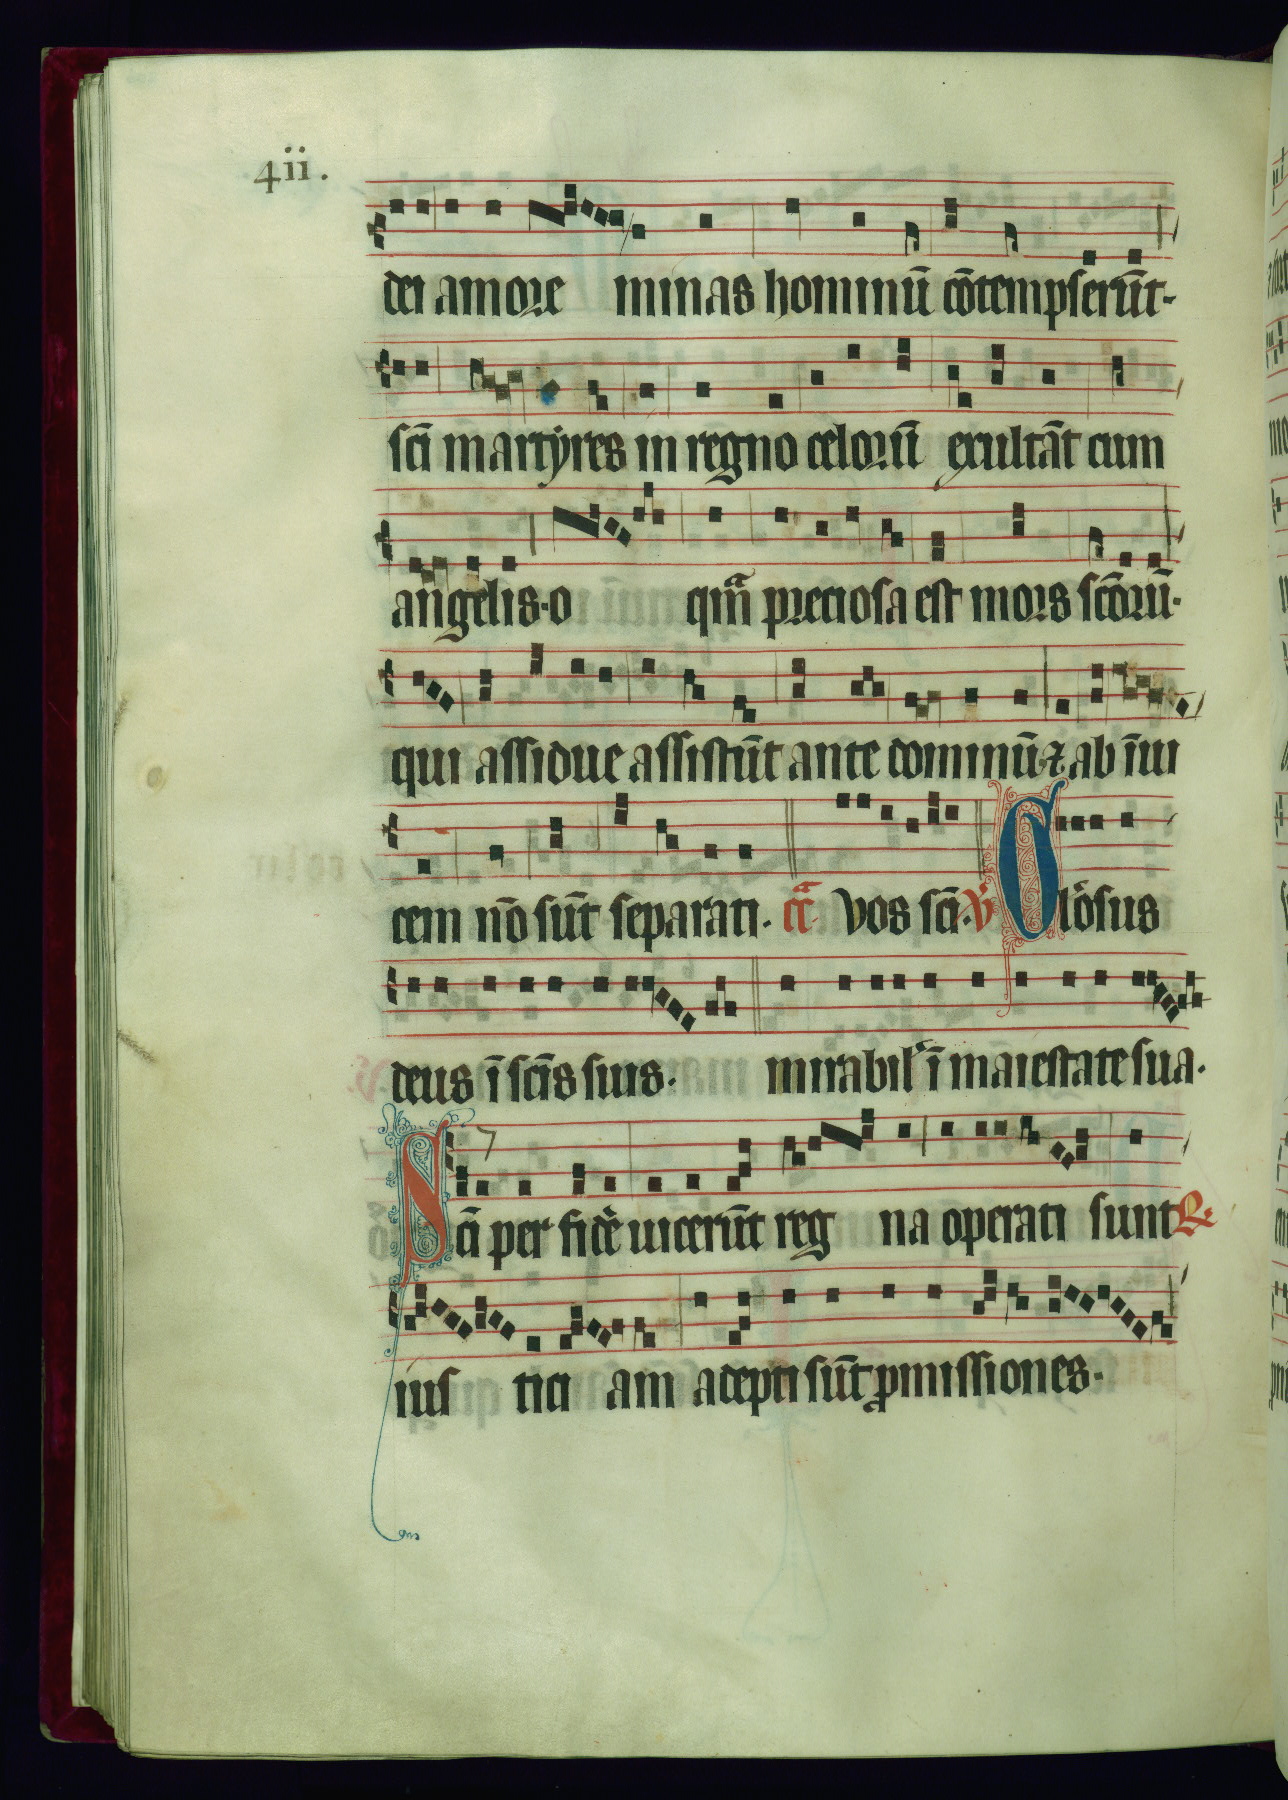 4ii.
dei amore minas hominū cōtempserūt-
scī martẏres in regno celorū exultāt cum
angelis·o qm̄ preciosa est mors scōrū·
qui assidue assistūt ante dominū·⁊ ab īui
cem nō sūt separati· cᷓr Vos scī· V̾ Glōsus
deus ī scīs suis· mirabil' ī maiestate sua·
Scī per fidē uicerūt reg na operati sunt R̾
ius tici am adepti sūt ꝓmissiones·